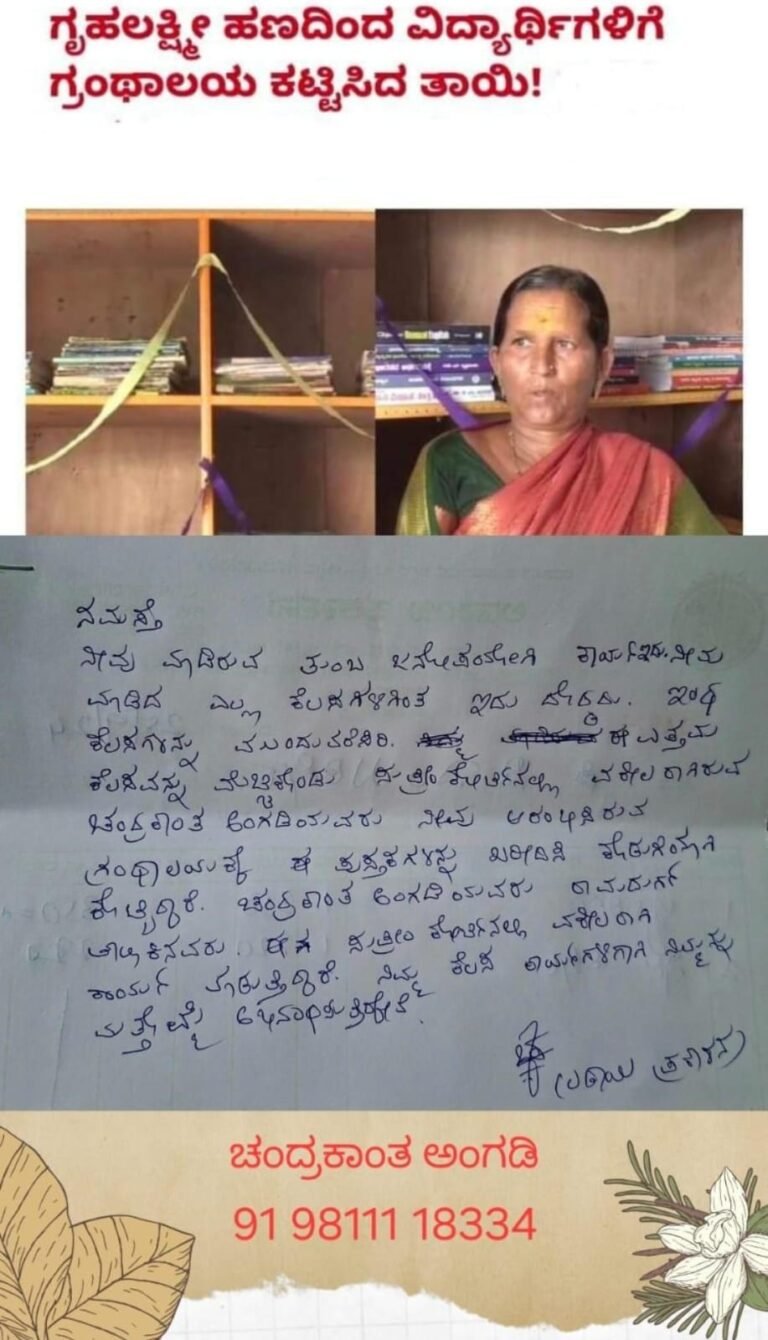 ಗೃಹಲಕ್ಷ್ಮೀ ಹಣದಿಂದ ವಿದ್ಯಾರ್ಥಿಗಳಿಗೆ
ಗ್ರಂಥಾಲಯ ಕಟ್ಟಿಸಿದ ತಾಯಿ!
ನಮಸ್ತೆ
ನೀವು ಮಾಡಿರುವ ತುಂಬ ಜನೋಪಯೋಗಿ ಕಾರ್ಯಇದು. ನೀವು
ಮಾಡಿದ ಎಲ್ಲ ಕೆಲಸಗಳಿಗಿಂತ ಇದು ದೊಡ್ಡದು. ಇಂಥ
ಕೆಲಸಗಳನ್ನು ಮುಂದುವರೆಸಿರಿ. ಈ ಉತ್ತಮ
ಕೆಲಸವನ್ನು ಮೆಚ್ಚಿಕೊಂಡು ಸುಪ್ರೀಂ ಕೋರ್ಟಿನಲ್ಲಿ ವಕೀಲರಾಗಿರುವ
ಚಂದ್ರಕಾಂತ ಅಂಗಡಿಯವರು ನೀವು ಆರಂಭಿಸಿರುವ
ಗ್ರಂಥಾಲಯಕ್ಕೆ ಈ ಪುಸ್ತಕಗಳನ್ನು ಖರೀದಿಸಿ
ಕೊಟ್ಟಿದ್ದಾರೆ. ಚಂದ್ರಕಾಂತ ಅಂಗಡಿಯವರು ರಾಮದುರ್ಗ
ತಾಲ್ಲೂಕಿನವರು. ಸುಪ್ರೀಂ ಕೋರ್ಟಿನಲ್ಲಿ ವಕೀಲರಾಗಿ
ಕಾರ್ಯ ಮಾಡುತ್ತಿದ್ದಾರೆ. ನಿಮ್ಮ ಕೆಲಸ ಕಾರ್ಯಗಳಿಗಾಗಿ ನಿಮ್ಮನ್ನು
ಮತ್ತೊಮ್ಮೆ ಅಭಿನಂದಿಸುತ್ತಿದ್ದೇನೆ.
ಪ್ರಕಾಶನ)
ಚಂದ್ರಕಾಂತ ಅಂಗಡಿ
91 98111 18334